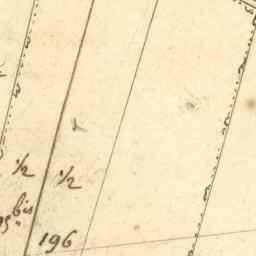 1/2 1/2
bis
196